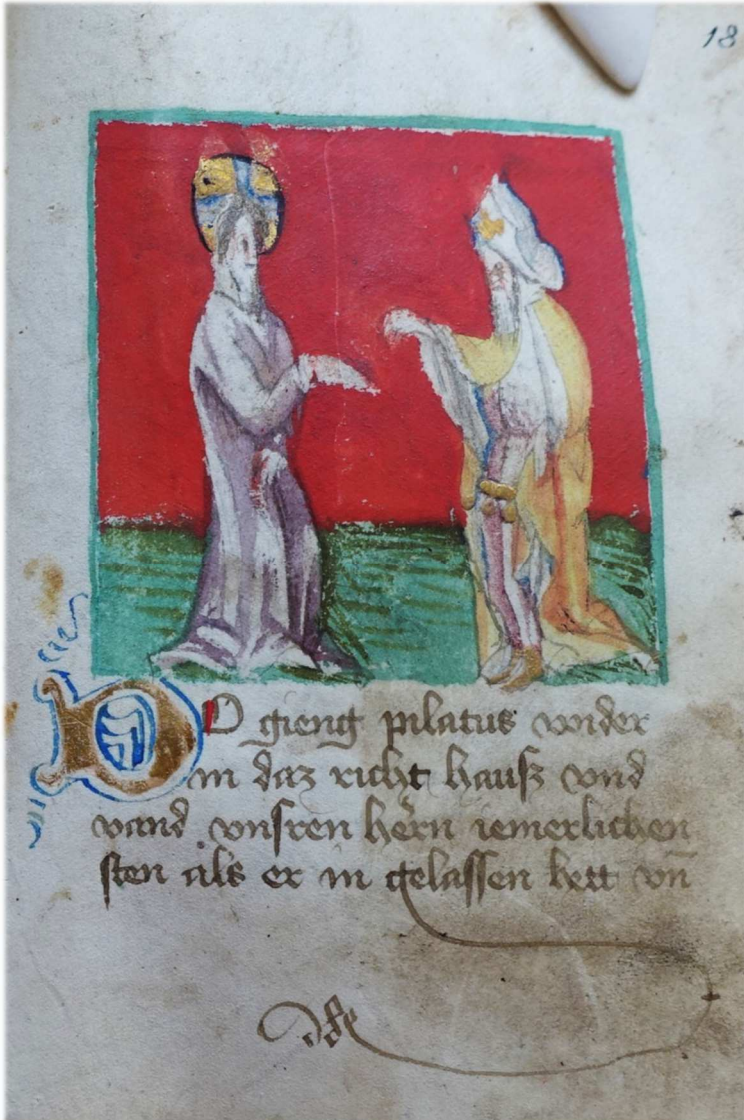 18
DO gieng pilatus wider
in daz richt hausz vnd
vand vnsren hern iemerlichen
sten als er in gelassen hett vn̄